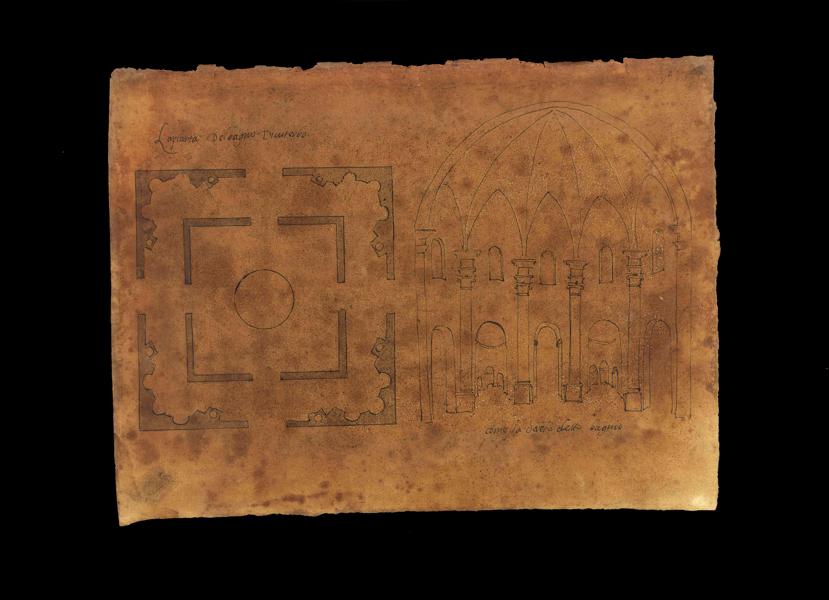 La pianta Del bagnio Di uiterbo
come sta dentro detto bagnio